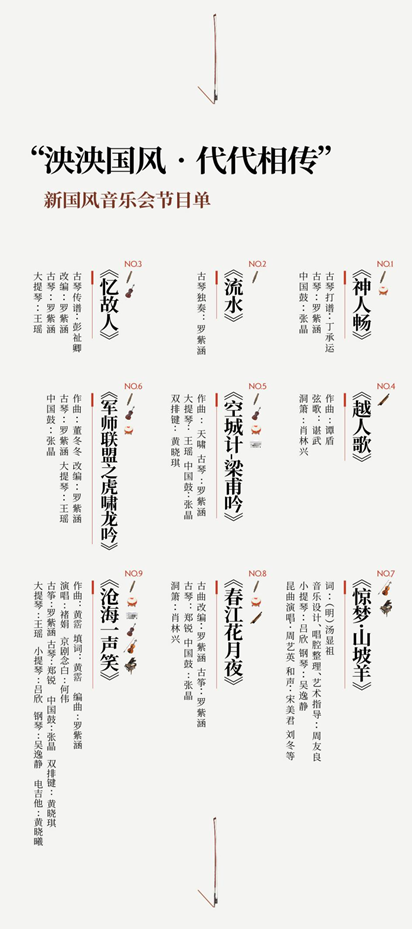 “泱泱国风·代代相传”
新国风音乐会节目单
NO.1
《神人畅》
古琴打谱：丁承运
古琴：罗紫涵
中国鼓：张晶
NO.2
《流水》
古琴独奏：罗紫涵
NO.3
《忆故人》
古琴传谱：彭祉卿
改编：罗紫涵
古琴：罗紫涵
大提琴：王瑶
NO.4
《越人歌》
作曲：谭盾
弦歌：谌武
洞箫：肖林兴
NO.5
《空城计-梁甫吟》
作曲：天啸 古琴：罗紫涵
大提琴：王瑶 中国鼓：张晶
双排键：黄晓琪
NO.6
《军师联盟之虎啸龙吟》
作曲：董冬冬 改编：罗紫涵
古琴：罗紫涵 大提琴：王瑶
中国鼓：张晶
NO.7
《惊梦·山坡羊》
词：（明）汤显祖
音乐设计、唱腔整理、艺术指导：周友良
小提琴：吕欣 钢琴：吴逸静
昆曲演唱：周艺英 和声：宋美君 刘冬等
NO.8
《春江花月夜》
古曲改编：罗紫涵 古筝：罗紫涵
古琴：郑锐 中国鼓：张晶
洞箫：肖林兴
NO.9
《沧海一声笑》
作曲：黄霑 填词：黄霑 编曲：罗紫涵
演唱：褚娟 京剧念白：何伟
古筝：罗紫涵 古琴：郑锐 中国鼓：张晶 双排键：黄晓琪
大提琴：王瑶 小提琴：吕欣 钢琴：吴逸静 电吉他：黄晓曦